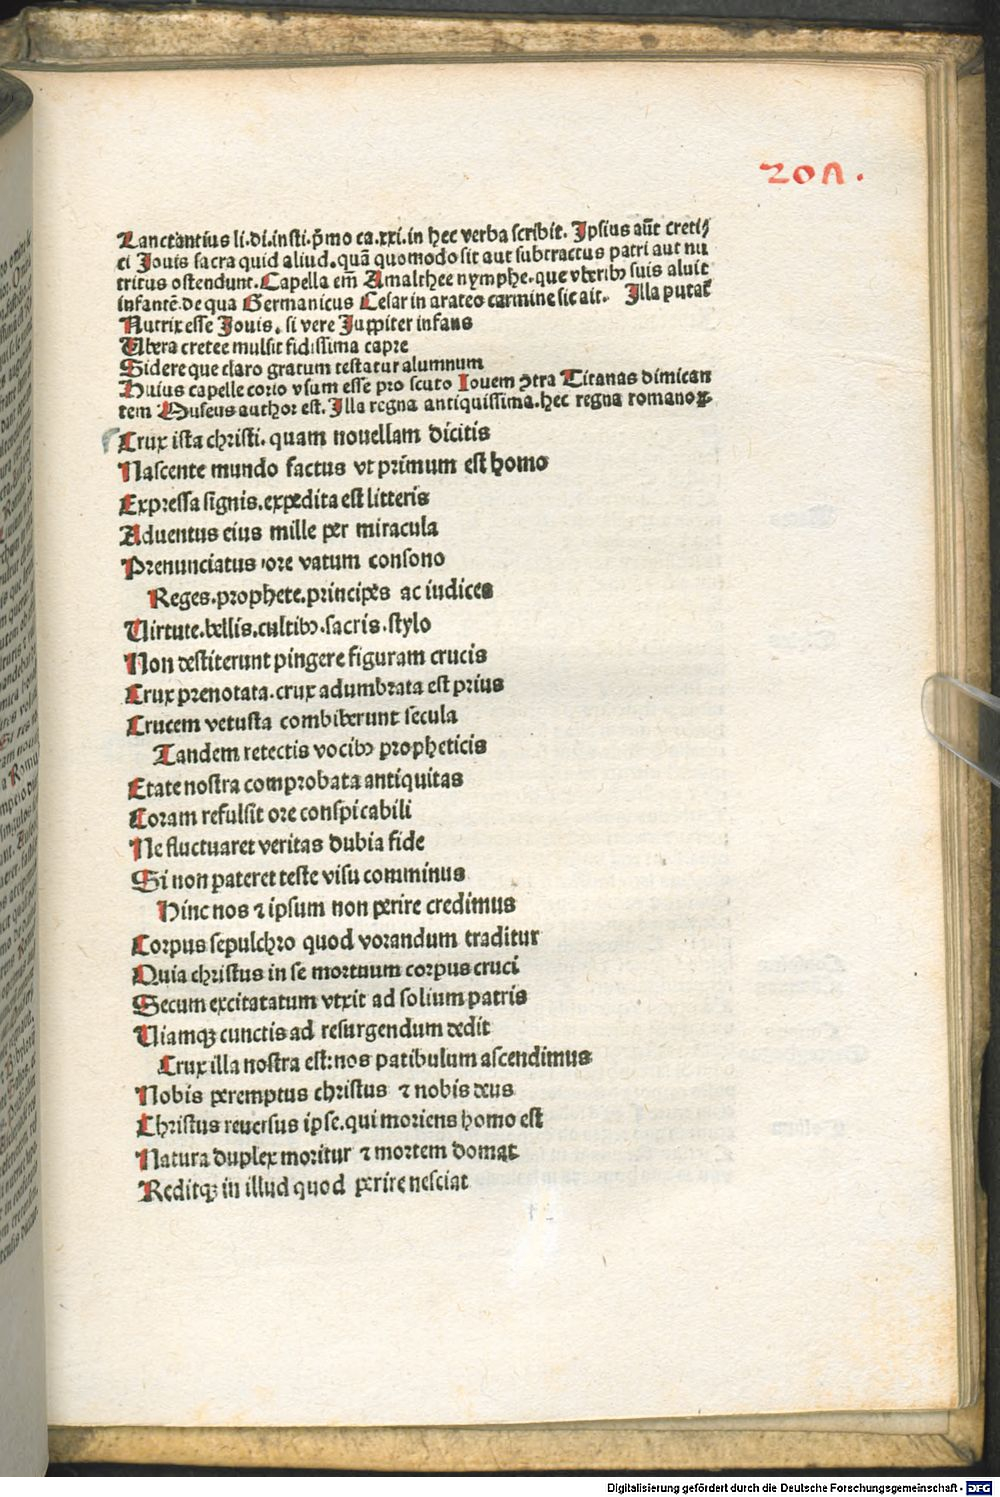 201.
Lanctantius li.di.insti.p̄mo ca.xxi.in hec verba scribit. Ipsius aūt creti⸗
ci Jouis sacra quid aliud.quā quomodo sit aut subtractus patri aut nu
tritus ostendunt.Capella em̄ Amalthee nymphe.que vberibꝫ suis aluit
infantē.de qua Germanicus Cesar in arateo carmine sic ait. Illa putat̄
Nutrix esse Jouis. si vere Juppiter infans
Ubera cretee mulsit fidissima capre
Sidere que claro gratum testatur alumnum
Huius capelle corio vsum esse pro scuto Iouem ꝯtra Titanas dimican
tem Museus author est. Illa regna antiquissima.hec regna romanoꝝ.
Crux ista christi. quam nouellam dicitis
Nascente mundo factus vt primum est homo
Expressa signis.expedita est litteris
Aduentus eius mille per miracula
Prenunciatus ore vatum consono
Reges.prophete.principes ac iudices
Uirtute.bellis.cultibꝫ.sacris.stylo
Non destiterunt pingere figuram crucis
Crux prenotata.crux adumbrata est prius
Crucem vetusta combiberunt secula
Tandem retectis vocibꝫ propheticis
Etate nostra comprobata antiquitas
Coram refulsit ore conspicabili
Ne fluctuaret veritas dubia fide
Si non pateret teste visu comminus
Hinc nos ⁊ ipsum non perire credimus
Corpus sepulchro quod vorandum traditur
Quia christus in se mortuum corpus cruci
Secum excitatatum vexit ad solium patris
Uiamqꝫ cunctis ad resurgendum dedit
Crux illa nostra est:nos patibulum ascendimus
Nobis peremptus christus ⁊ nobis deus
Christus reuersus ipse.qui moriens homo est
Natura duplex moritur ⁊ mortem domat
Reditqꝫ in illud quod perire nesciat
Digitalisierung gefördert durch die Deutsche Forschungsgemeinschaft - DFG